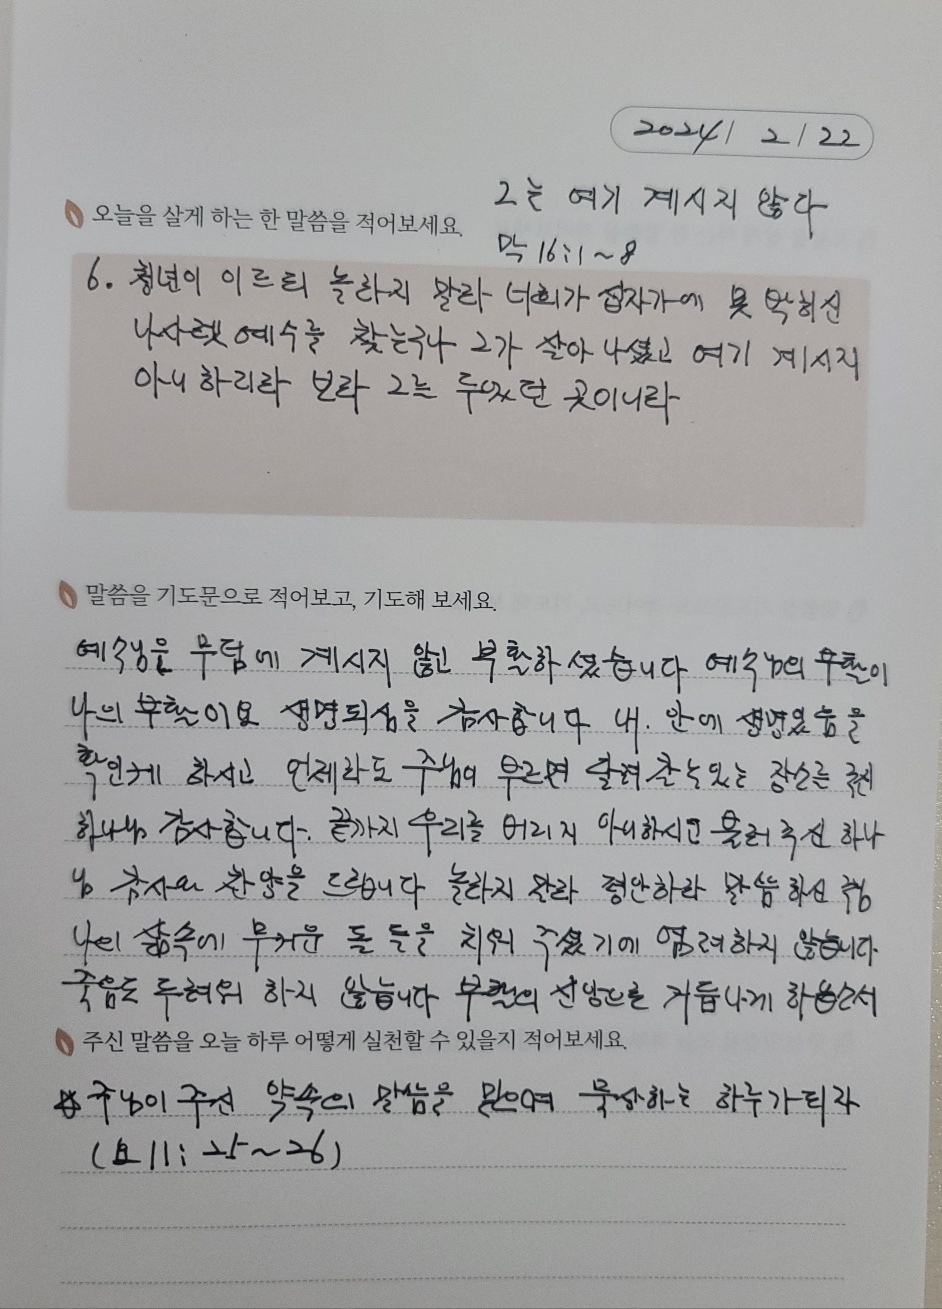 2024/ 2/22
그는 여기 계시지 않다
오늘을 살게 하는 한 말씀을 적어보세요.
막 16:1~8
6. 청년이 이르되 놀라지 말라 너희가 십자가에 못 박히신
나사렛 예수를 찾는구나 그가 살아 나셨고 여기 계시지
아니 하리라 보라 그는 두었던 곳이니라
말씀을 기도문으로 적어보고, 기도해 보세요.
예수님을 무덤에 계시지 않고 부활하셨습니다 예수님의 부활이
나의 부활이요 생명되심을 감사합니다 내. 안에 생명있음을
확인케 하시고 언제라도 주님이 부르면 달려 갈수있는 장소를 주신
하나님 감사합니다. 끝까지 우리를 버리지 아니하시고 불러주신 하나
님 감사와 찬양을 드립니다 놀라지 말라 평안하라 말씀하신 주님
나의 삶속에 무거운 돌 들을 치워 주셨기에 염려하지 않습니다
죽음도 두려워 하지 않습니다 부활의 신앙으로 거듭나게 하옵소서
주신 말씀을 오늘 하루 어떻게 실천할 수 있을지 적어보세요.
주님이 주신 약속의 말씀을 믿으며 묵상하는 하루가 되라
(요 11: 25~26)